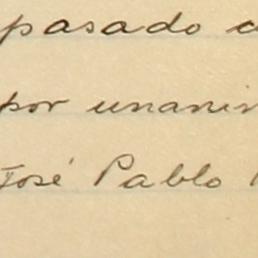 pasado
por unanim
José Pablo